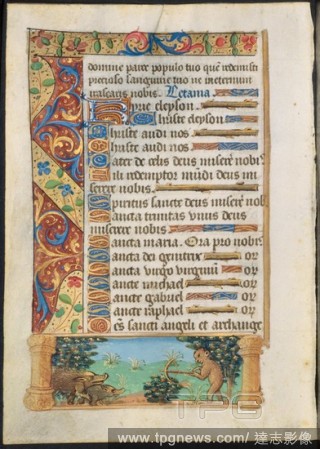 domine parce populo tuo quē redemisti
precioso sanguine tuo ne in eternum
irascaris nobis. Letania.
Kyrie eleyson.
Christe eleyson
Christe audi nos
Christe audi nos
Pater de celis deus miserē nobis
Fili redemptor mūdi deus mi
serere nobis.
Spiritus sancte deus miserē nob
Sancta trinitas vnus deus
miserere nobis
Sancta maria. Ora pro nobis
Sancta dei genitrix or
Sancta virgo virginū or
Sancte michael or
Sancte gabriel or
Sancte raphael or
Oēs sancti angeli et archange
TPG
www.tpgnews.com / 達志影像